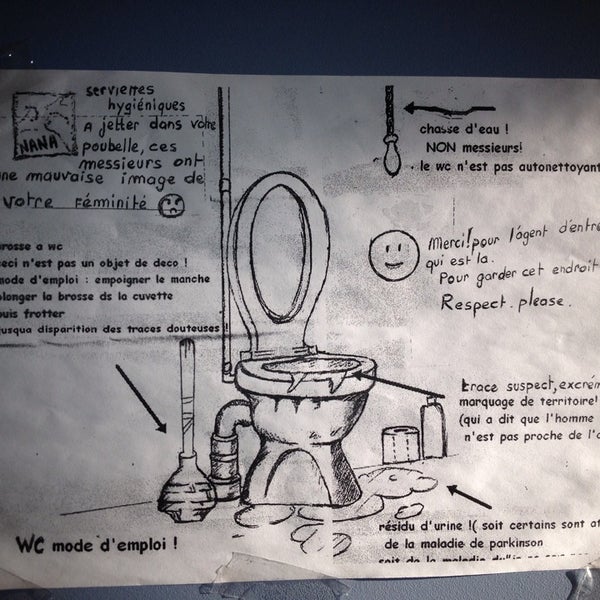 serviettes
hygiéniques
A jetter dans votre
poubelle, ces
messieurs ont
une mauvaise image de
votre Féminité
NANA
chasse d'eau !
NON messieurs!
le wc n'est pas autonettoyant
Merci! pour l'agent d'entre
qui est la.
Pour garder cet endroit
Respect. please.
brosse a wc
ceci n'est pas un objet de deco !
mode d'emploi : empoigner le manche
plonger la brosse ds la cuvette
puis frotter
jusqua disparition des traces douteuses !
trace suspect, excrém
marquage de territoire!
(qui a dit que l'homme
n'est pas proche de l'a
résidu d'urine !( soit certains sont at
de la maladie de parkinson
soit de la maladie
WC mode d'emploi !